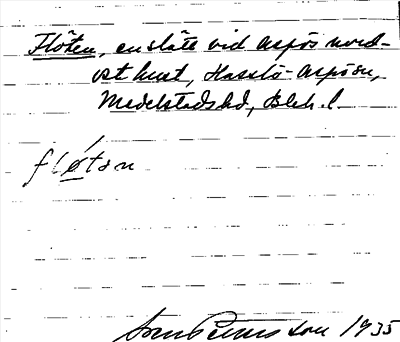 Flöten, en slåte vid Aspös nord-
östkust, Hasslö-Aspösu,
Medelstads hd, Blek. l.
fløtən
Pettersson 1935